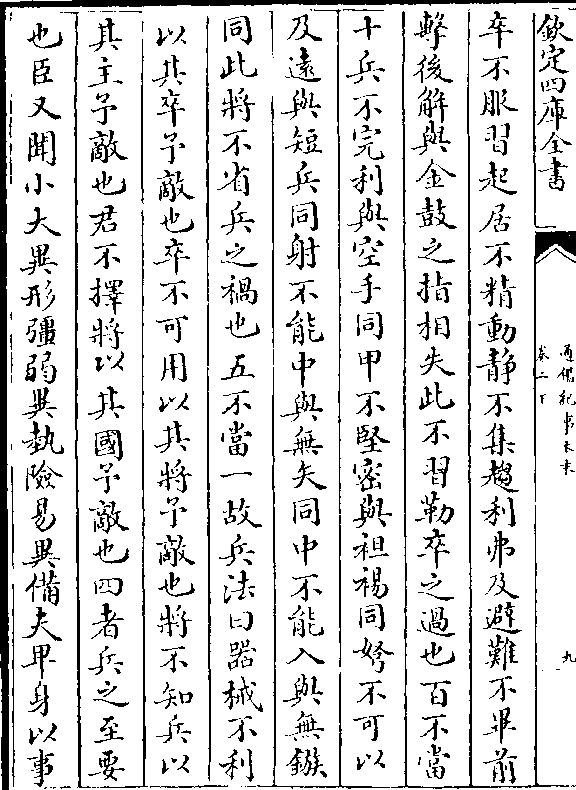 欽定四庫全書
通鑑紀事本末
卷二下
九
卒不服習起居不精動靜不集趨利弗及避難不畢前
擊後解與金鼓之指相失此不習勒卒之過也百不當
十兵不完利與空手同甲不堅密與袒裼同弩不可以
及遠與短兵同射不能中與無矢同中不能入與無鏃
同此將不省兵之禍也五不當一故兵法曰器械不利
以其卒予敵也卒不可用以其將予敵也將不知兵以
其主予敵也君不擇將以其國予敵也四者兵之至要
也臣又聞小大異形彊弱異埶險易異備夫卑身以事